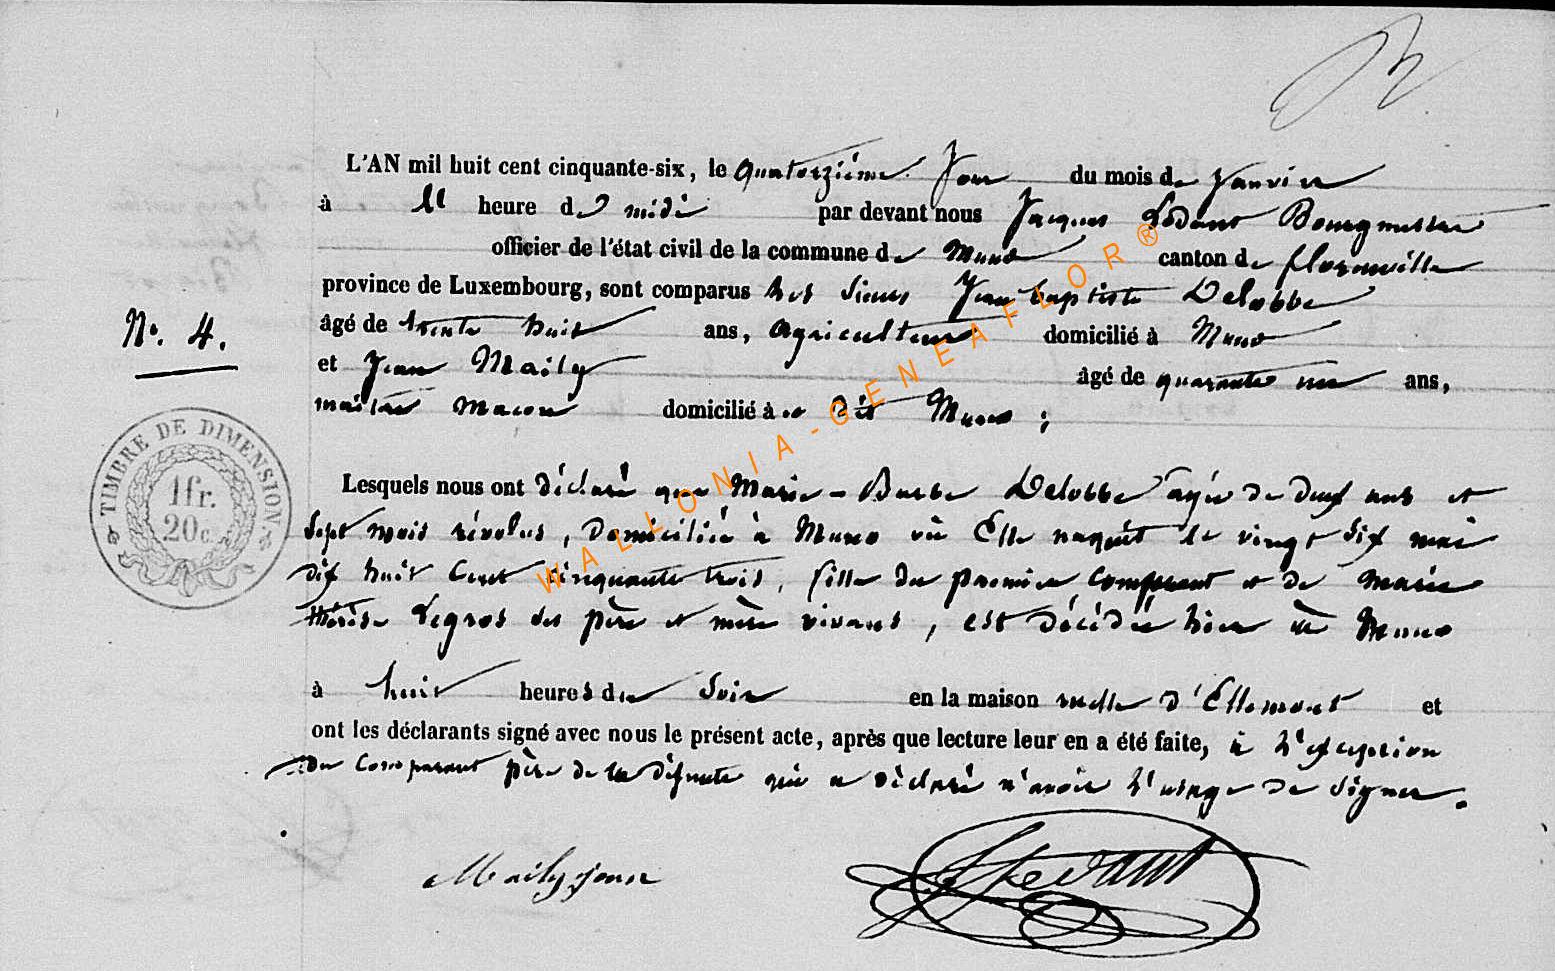 L'AN mil huit cent cinquante-six, le quatorzième Jour du mois de Janvier
à 11 heure de midi par devant nous Jacques Bourgmestre
officier de l'état civil de la commune de Muno canton de florenville
province de Luxembourg, sont comparus les sieurs Jean Baptiste Delobbe
No. 4.
âgé de trente huit ans, Agriculteur domicilié à Muno
et Jean Maily âgé de quarante un ans,
maître Macon domicilié à Muno ;
TIMBRE DE DIMENSION.
1fr.
20c.
Lesquels nous ont déclaré que Marie-Barbe Delobbe agée de deux ans et
sept mois révolus, domiciliée à Muno où Elle naquit le vingt six mai
dix huit cent cinquante trois, fille du premier comparant et de Marie
thérèse Legros ses père et mère vivans, est décédée hier à Muno
à huit heures du soir en la maison ruelle d'Ellemont et
ont les déclarants signé avec nous le présent acte, après que lecture leur en a été faite, à l'exception
du comparant père de la défunte qui a déclaré n'avoir l'usage de signer.
Maily jean
WALLONIA-GENEAFLOR®